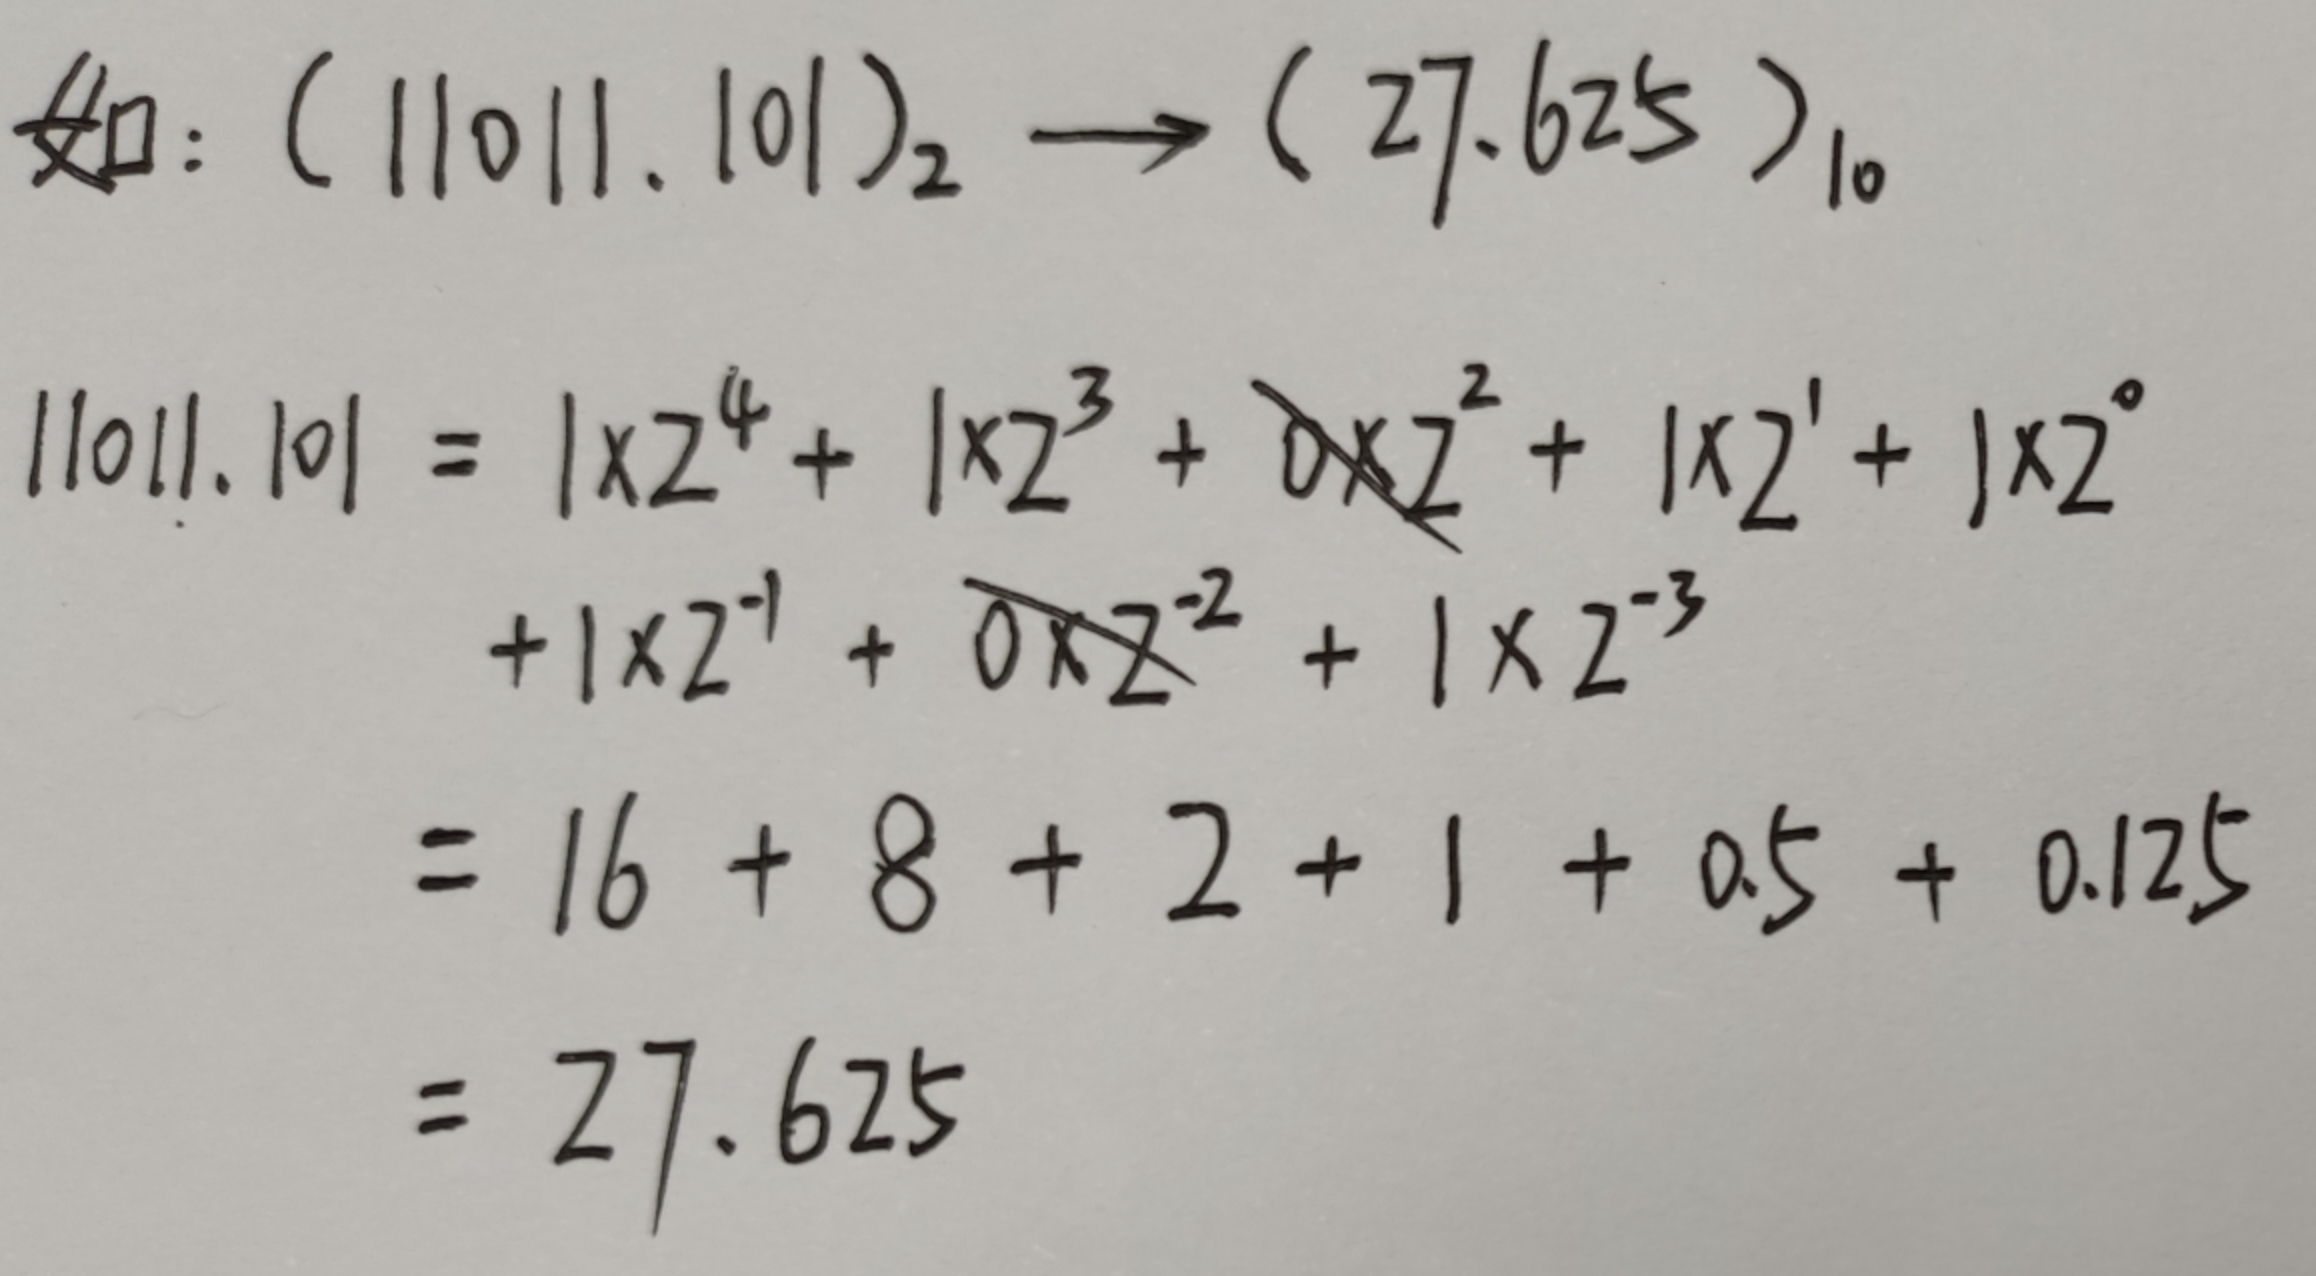 如: (11011.101)₂ → (27.625)₁₀
11011.101 = 1×2⁴ + 1×2³ + 0×2² + 1×2¹ + 1×2⁰
+1×2⁻¹ + 0×2⁻² + 1×2⁻³
= 16 + 8 + 2 + 1 + 0.5 + 0.125
= 27.625